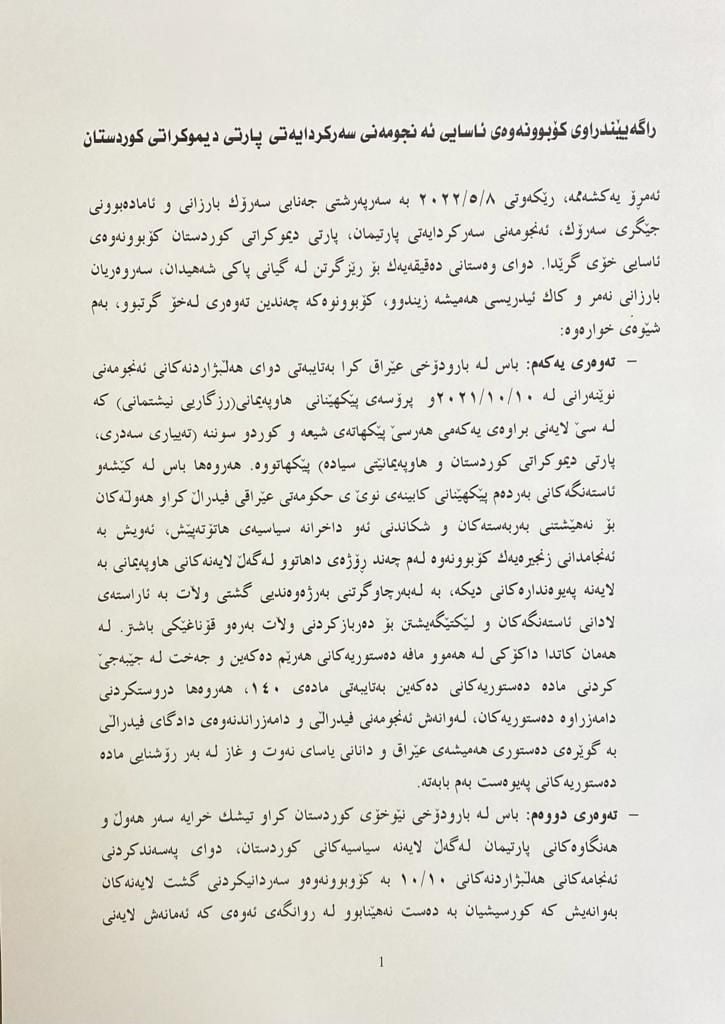 راگەیێندراوی کۆبوونەوەی ئاسایی ئەنجومەنی سەرکردایەتی پارتی دیموکراتی کوردستان
ئەمرۆ یەکشەممە، رێکەوتی ٢٠٢٢/٥/٨ بە سەرپەرشتی جەنابی سەرۆک بارزانی و ئامادەبوونی
جێگری سەرۆک، ئەنجومەنی سەرکردایەتی پارتیمان، پارتی دیموکراتی کوردستان کۆبوونەوەی
ئاسایی خۆی گرێدا. دوای وەستانی دەقیقەیەک بۆ رێزگرتن لە گیانی پاکی شەهیدان، سەروەریان
بارزانی نەمر و کاک ئیدریسی هەمیشە زیندوو، کۆبوونوەکە چەندین تەوەری لەخۆ گرتبوو، بەم
شێوەی خوارەوە:
– تەوەری یەکەم: باس لە بارودۆخی عێراق کرا بەتایبەتی دوای هەڵبژاردنەکانی ئەنجومەنی
نوێنەرانی لە ٢٠٢١/١٠/١٠و پرۆسەی پێکهێنانی هاوپەیمانی(رزگاریی نیشتمانی) کە
لە سێ لایەنی براوەی یەکەمی هەرسێ پێکهاتەی شیعە و کوردو سوننە (تەییاری سەدری،
پارتی دیموکراتی کوردستان و هاوپەیمانێتی سیادە) پێکهاتووە. هەروەها باس لە کێشەو
ئاستەنگەکانی بەردەم پێکهێنانی کابینەی نوێ ی حکومەتی عێراقی فیدراڵ کراو هەوڵەکان
بۆ نەهێشتنی بەربەستەکان و شکاندنی ئەو داخرانە سیاسیەی هاتۆتەپێش، ئەویش بە
ئەنجامدانی زنجیرەیەک کۆبوونەوە لەم چەند رۆژەی داهاتوو لەگەڵ لایەنەکانی هاوپەیمانی بە
لایەنە پەیوەندارەکانی دیکە، بە لەبەرچاوگرتنی بەرژەوەندیی گشتی ولات بە ئاراستەی
لادانی ئاستەنگەکان و لێکتێگەیشتن بۆ دەربازکردنی ولات بەرەو قۆناغێکی باشتر. لە
هەمان کاتدا داکۆکی لە هەموو مافە دەستوریەکانی هەرێم دەکەین و جەخت لە جێبەجێ
کردنی مادە دەستوریەکانی دەکەین بەتایبەتی مادەی ١٤٠، هەروەها دروستکردنی
دامەزراوە دەستوریەکان، لەوانەش ئەنجومەنی فیدراڵی و دامەزراندنەوەی دادگای فیدراڵی
بە گوێرەی دەستوری هەمیشەی عێراق و دانانی یاسای نەوت و غاز لە بەر رۆشنایی مادە
دەستوریەکانی پەیوەست بەم بابەتە.
– تەوەری دووەم: باس لە بارودۆخی نێوخۆی کوردستان کراو تیشک خرایە سەر هەوڵ و
هەنگاوەکانی پارتیمان لەگەڵ لایەنە سیاسیەکانی کوردستان، دوای پەسەندکردنی
ئەنجامەکانی هەڵبژاردنەکانی ١٠/١٠ بە کۆوبوونەوەو سەردانیکردنی گشت لایەنەکان
بەوانەیش کە کورسیشیان بە دەست نەهێنابوو لە روانگەی ئەوەی کە ئەمانەش لایەنی
1